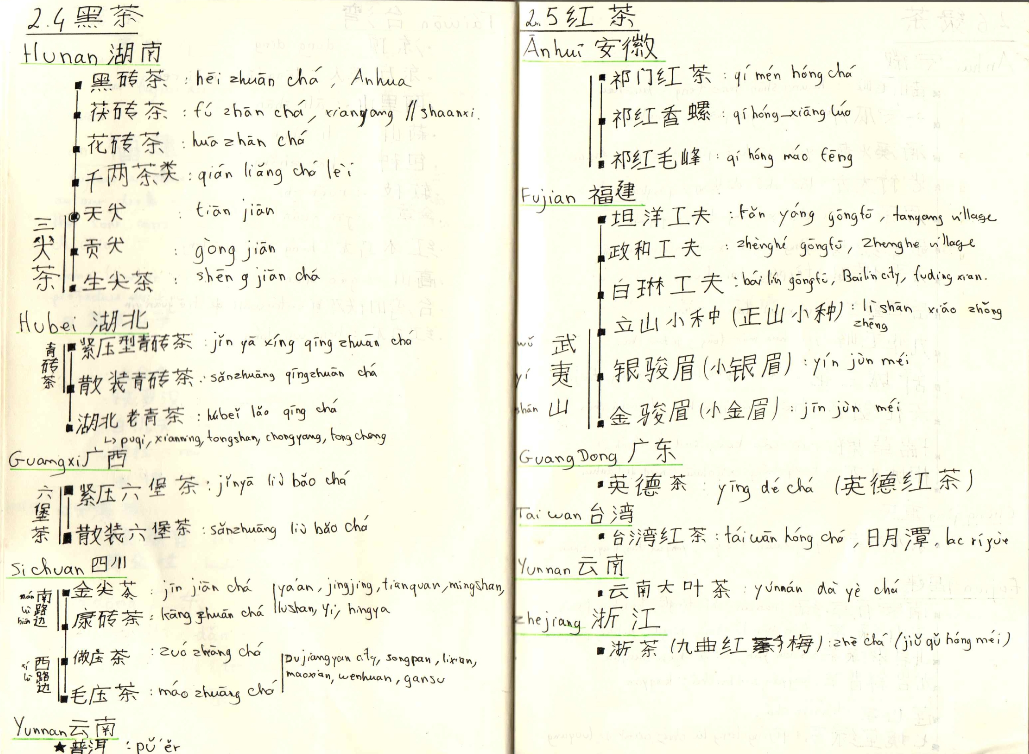 2.4 黑茶
Hunan 湖南
黑砖茶 : hēi zhuān chá, Anhua
茯砖茶 : fú zhān chá, xianyang // shaanxi.
花砖茶 : huā zhān chá
千两茶类 : qián liǎng chá lèi
三尖茶
天尖 : tiān jiān
贡尖 : gòng jiān
生尖茶 : shēng jiān chá
Hubei 湖北
青砖茶
紧压型青砖茶 : jǐn yā xíng qīng zhuān chá
散装青砖茶 : sǎnzhuāng qīngzhuān chá
湖北老青茶 : húbeǐ lǎo qīng chá
↳ puqi, xianning, tongshan, chongyang, tongcheng
Guangxi 广西
六堡茶
紧压六堡茶 : jǐnyā liù bǎo chá
散装六堡茶 : sǎnzhuāng liù bǎo chá
Sichuan 四川
南路边
金尖茶 : jīn jiān chá
康砖茶 : kāng zhuān chá
ya'an, jingjing, tianquan, mingshan,
lushan, yi, hingya
西路边
做庄茶 zuó zhāng chá
毛庄茶 : máo zhuāng chá
Dujiangyan city, songpan, lixian,
maoxian, wenhuan, gansu
Yunnan 云南
★普洱 : pǔ'ěr
2.5 红茶
Ānhuī 安徽
祁门红茶 : qí mén hóng chá
祁红香螺 : qí hóng xiāng luó
祁红毛峰 : qí hóng máo fēng
Fujian 福建
坦洋工夫 : tǎn yáng gōngfū, tanyang village
政和工夫 : zhènghé gōngfū, Zhenghe village
白琳工夫 : bái lín gōngfū, Bailin city, fuding xian.
立山小种 (正山小种) : lì shān xiǎo zhǒng
zhēng
wǔ yí shān 武夷山
银骏眉 (小银眉) : yín jùn méi
金骏眉 (小金眉) : jīn jùn méi
GuangDong 广东
英德茶 : yīng dé chá (英德红茶)
Taiwan 台湾
台湾红茶 : tái wān hóng chá, 日月潭, lac rí yuè
Yunnan 云南
云南大叶茶 : yúnnán dà yè chá
zhejiang 浙江
浙茶 (九曲红梅) : zhè chá (jiǔ qǔ hóng méi)